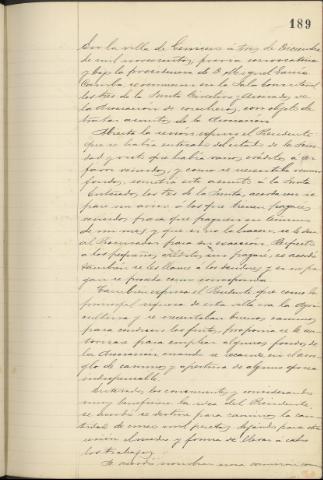 189
En la villa de Cenicero á tres de Diciembre
de mil novecientos, previa convocatoria
y bajo la presidencia de D. Miguel García
se reunieron en la Sala Consistorial
los Sres de la Junta Directiva de
la Asociación de cosecheros, con objeto de
tratar asuntos de la Asociación.
Abierta la sesión expuso el Presidente
que se había enterado del estado de la Socie
dad y vió que había varios créditos á su
favor vencidos, y como se necesitaba reunir
fondos, sometía este asunto á la Junta
Enterados los Sres de la Junta, acordaron se
pase un aviso á los que tienen pagarés
vencidos para que paguen en término
de un mes y que si no lo hacen, se le dé
al Procurador para su ejecución. Respecto
á los pequeños créditos sin pagaré, se acordó
también se les llame á los deudores y si no pa
gan se proceda como corresponda.
También expuso el Presidente que como la
principal riqueza de esta villa era la Agri
cultura y se necesitaban buenos caminos
para conducir los frutos, proponía se le au
torizase para emplear algunos fondos de
la Asociación, cuando se recauden en el arre
glo de caminos y apertura de alguno que sea
indispensable.
Enterados los concurrentes y considerando
muy beneficiosa la idea del Presidente,
se acordó se destine para caminos la can
tidad de once mil pesetas, dejando para otra
reunión el modo y forma de llevar á cabo
los trabajos.
Se acordó nombrar una comisión com